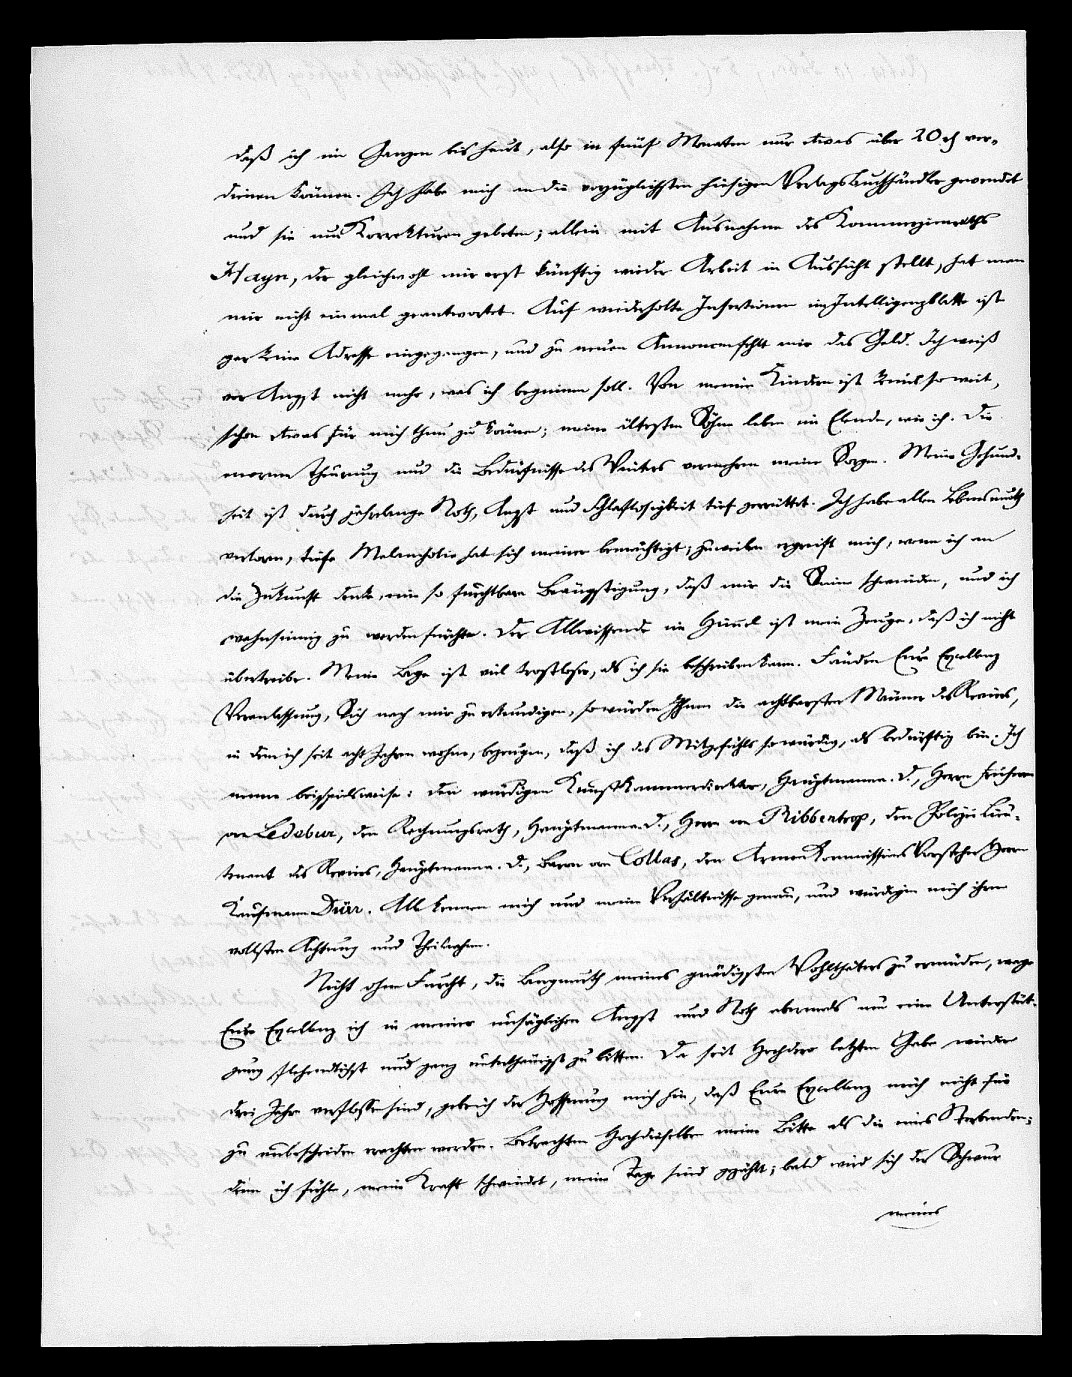 daß ich im Ganzen bis heut, also in fünf Monaten nur etwas über 20 rh ver-
dienen können. Ich habe mich an die vorzüglichsten hiesigen Verlagsbuchhändler gewendet
und sie um Korrekturen gebeten; allein mit Ausnahme des Kommerzienraths
Hayn, der gleichwohl mir erst künftig wieder Arbeit in Aussicht stellt, hat man
mir nicht einmal geantwortet. Auf wiederholte Insertionen im Intelligenzblatte ist
gar keine Adresse eingegangen, und zu neuen Annoncen fehlt mir das Geld. Ich weiß
vor Angst nicht mehr, was ich beginnen soll. Von meinen Kindern ist keins so weit,
schon etwas für mich thun zu können; meine ältesten Söhne leben im Elende, wie ich. Die
enorme Theurung und die Bedürfnisse des Winters vermehren meine Sorgen. Meine Gesund-
heit ist durch jahrelange Noth, Angst und Schlaflosigkeit tief zerrüttet. Ich habe allen Lebensmuth
verloren, tiefe Melancholie hat sich meiner bemächtigt; zuweilen ergreift mich, wenn ich an
die Zukunft denke, eine so furchtbare Beängstigung, daß mir die Sinne schwinden, und ich
wahnsinnig zu werden fürchte. Der Allwissende im Himmel ist mein Zeuge, daß ich nicht
übertreibe. Meine Lage ist viel trostloser, als ich sie beschreiben kann. Fänden Eure Excellenz
Veranlassung, Sich nach mir zu erkundigen, so würden Ihnen die achtbarsten Männer des Reviers,
in dem ich seit acht Jahren wohne, bezeugen, daß ich des Mitgefühls so würdig, als bedürftig bin. Ich
nenne beispielsweise: den würdigen Kunstkammerdirektor, Hauptmann a. D., Herrn Freiherrn
von Ledebur, den Rechnungsrath, Hauptmann a. D., Herrn von Ribbentrop, den Polizei-Lieu-
tenant des Reviers, Hauptmann a. D., Baron von Collas, den Armen-Kommissions-Vorsteher Herrn
Kaufmann Dürr. All kennen mich und meine Verhältnisse genau, und würdigen mich ihrer
vollsten Achtung und Theilnahme.
Nicht ohne Furcht, die Langmuth meines gnädigsten Wohlthäters zu ermüden, wage
Eure Excellenz ich in meiner unsäglichen Angst und Noth abermals um eine Unterstüt-
zung flehendlichst und ganz unterthänigst zu bitten. Da seit Hochdero letzten Gabe wieder
drei Jahre verflossen sind, gebe ich der Hoffnung mich hin, daß Eure Excellenz mich nicht für
zu unbescheiden erachten werden. Betrachten Hochdieselben meine Bitte als die eines Sterbenden;
denn ich fühle, meine Kraft schwindet, meine Tage sind gezählt; bald wird sich der Schwur
meines